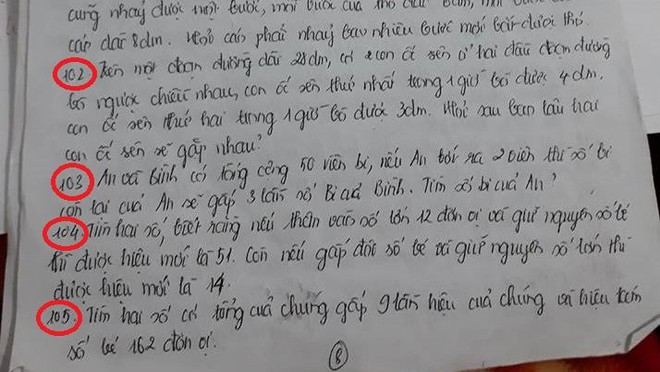 cũng nhảy được một bước, mỗi bước của thỏ dài 3dm, một bước của
cáo dài 8dm. Hỏi cáo phải nhảy bao nhiêu bước mới bắt được thỏ.
102 Trên một đoạn đường dài 28dm, có 2 con ốc sên ở hai đầu đoạn đường
bò ngược chiều nhau, con ốc sên thứ nhất trong 1 giờ bò được 4dm,
con ốc sên thứ hai trong 1 giờ bò được 3dm. Hỏi sau bao lâu hai
con ốc sên sẽ gặp nhau?
103 An và Bình có tổng cộng 50 viên bi, nếu An bớt ra 2 viên thì số bi
còn lại của An sẽ gấp 3 lần số Bi của Bình. Tìm số bi của An?
104 Tìm hai số, biết rằng nếu thêm vào số lớn 12 đơn vị và giữ nguyên số bé
thì được hiệu mới là 51. Còn nếu gấp đôi số bé và giữ nguyên số lớn thì
được hiệu mới là 14.
105. Tìm hai số có tổng của chúng gấp 9 lần hiệu của chúng và hiệu kém
số bé 162 đơn vị.
8